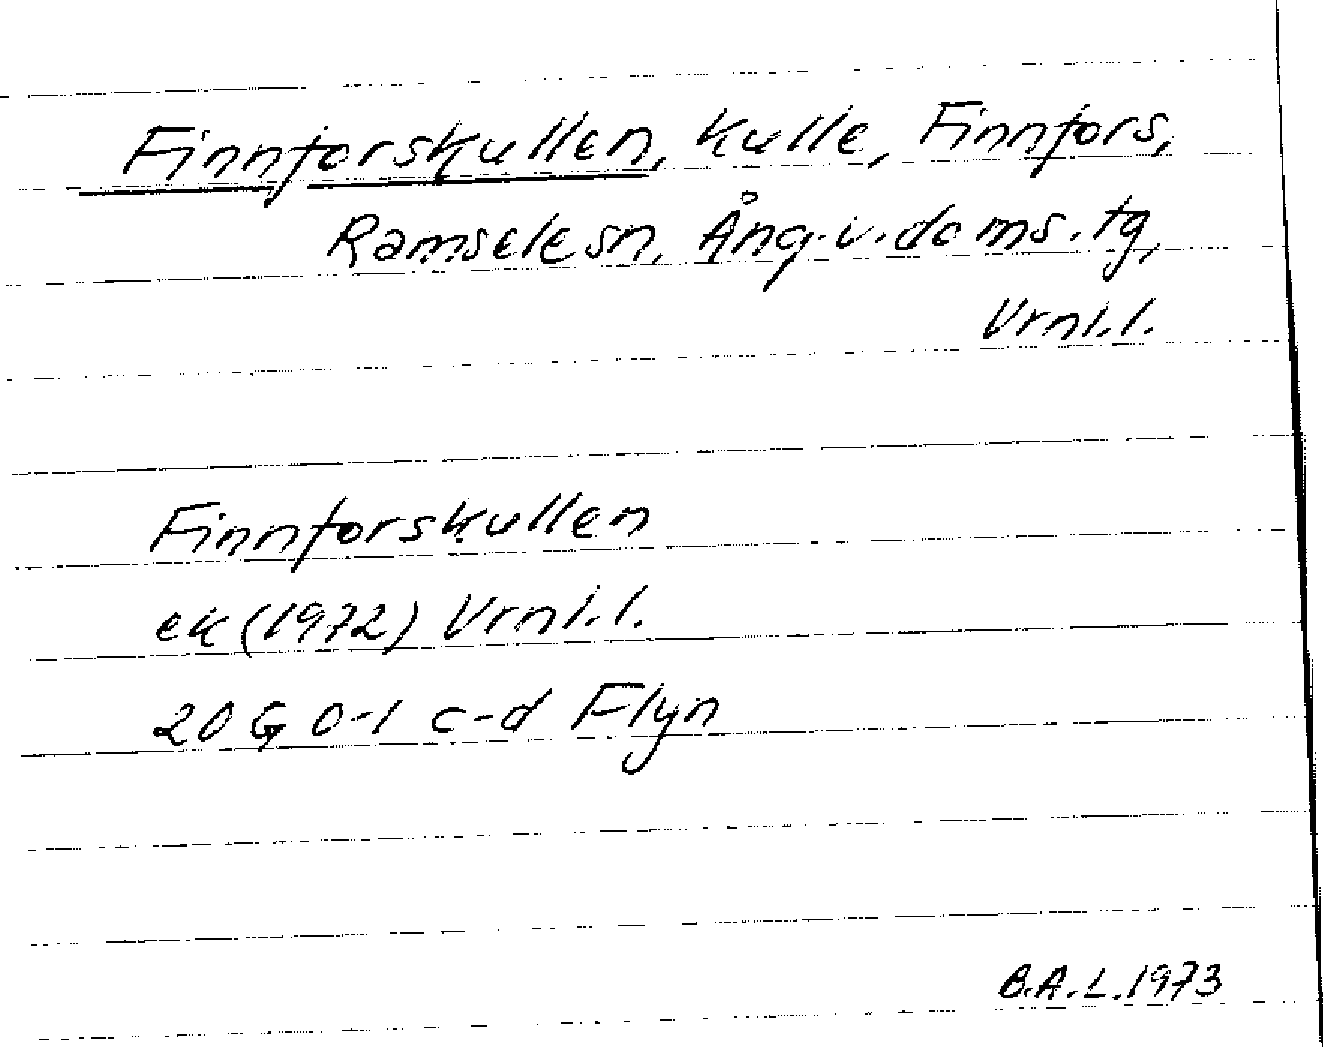 Finnforskullen, kulle, Finnfors,
Ramsele sn, Ång.v.doms.tg,
Vrnl.l.
Finnforskullen
ek (1972) Vrnl.l.
20 G 0-1 c-d Flyn
B.A.L.1973